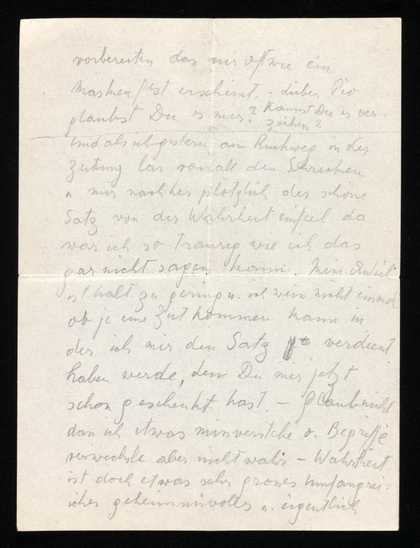 vorbereiten das mir oft wie ein
Maskenfest erscheint – lieber Pio
glaubst Du es mir? Kannst Du es ver-
zeihen?
Und als ich gestern am Rückweg in der
Zeitung las von all den Schrecken
u mir nachher plötzlich der schöne
Satz von der Wahrheit einfiel da
war ich so traurig wie ich das
gar nicht sagen kann. Mein Anteil
ist halt zu gering u. ich weiss nicht einmal
ob je eine Zeit kommen kann in
der ich mir den Satz verdient
haben werde, den Du mir jetzt
schon geschenkt hast – Glaub nicht
dan ich etwas missverstehe o. Begriffe
verwechsle aber nicht wahr – Wahrheit
ist doch etwas sehr grosses umfangrei-
ches geheimnisvolles u. eigentlich